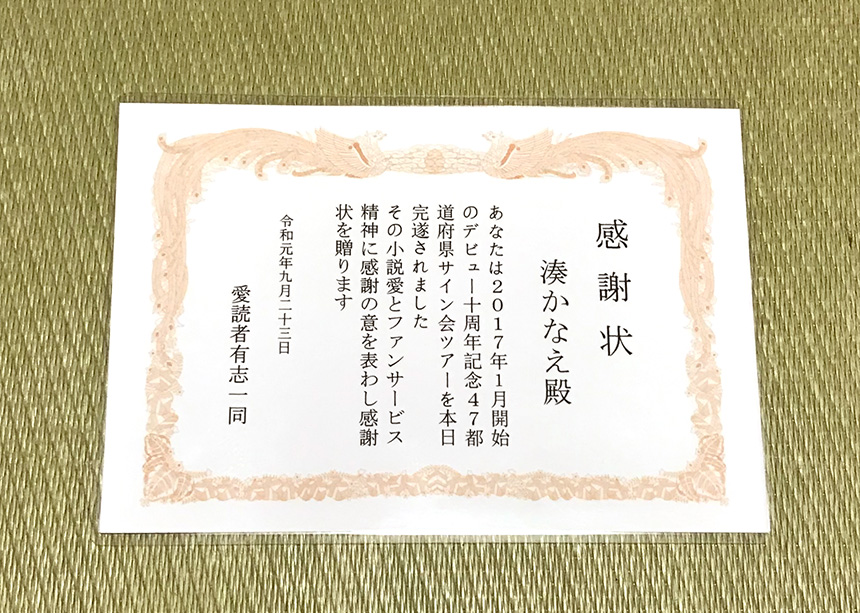 感謝状
湊かなえ殿
あなたは２０１７年１月開始
のデビュー十周年記念４７都
道府県サイン会ツアーを本日
完遂されました
その小説愛とファンサービス
精神に感謝の意を表わし感謝
状を贈ります
令和元年九月二十三日
愛読者有志一同